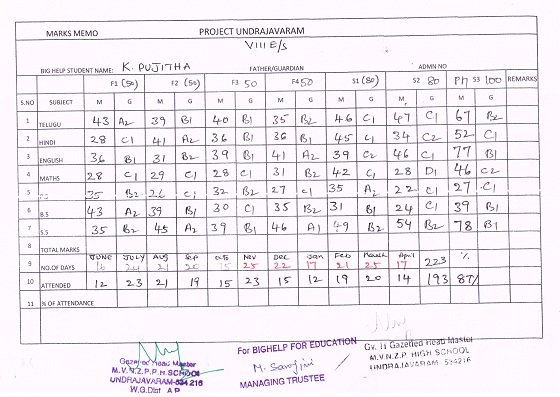 MARKS MEMO PROJECT UNDRAJAVARAM
VIII E/s
BIG HELP STUDENT NAME: K. PUJITHA FATHER/GUARDIAN ADMN NO
F1 (50) F2 (50) F3 50 F4 50 S1 (80) S2 80 PH S3 100 REMARKS
S.NO SUBJECT M G M G M G M G M G M G M G
1 TELUGU 43 A2 39 B1 40 B1 35 B2 46 C1 47 C1 67 B2
2 HINDI 28 C1 41 A2 36 B1 36 B1 45 C1 34 C2 52 C1
3 ENGLISH 36 B1 31 B2 39 B1 41 A2 39 C2 46 C1 77 B1
4 MATHS 28 C1 29 C1 28 C1 31 B2 42 C1 28 D1 46 C2
5 35 B2 26 C1 32 B2 27 C1 35 A2 22 C1 27 C1
6 B.S 43 A2 39 B1 30 C1 35 B2 31 B1 24 C1 39 B1
7 S.S 35 B2 45 A2 39 B1 46 A1 49 B2 54 B2 78 B1
8 TOTAL MARKS
JUNE JULY AUG Sep Oct Nov Dec Jan Feb March April
9 NO.OF DAYS 16 24 21 20 15 25 22 17 21 25 17 223 %
10 ATTENDED 12 23 21 19 15 23 15 12 19 20 14 193 87%
11 % OF ATTENDANCE
Gazetted Head Master
M.V.N.Z.P.P.H.SCHOOL
UNDRAJAVARAM-534 216
W.G.Dist. A.P
For BIGHELP FOR EDUCATION
M. Sarojini
MANAGING TRUSTEE
Gr. II Gazetted Head Master
M.V.N.Z.P. HIGH SCHOOL
UNDRAJAVARAM - 534216